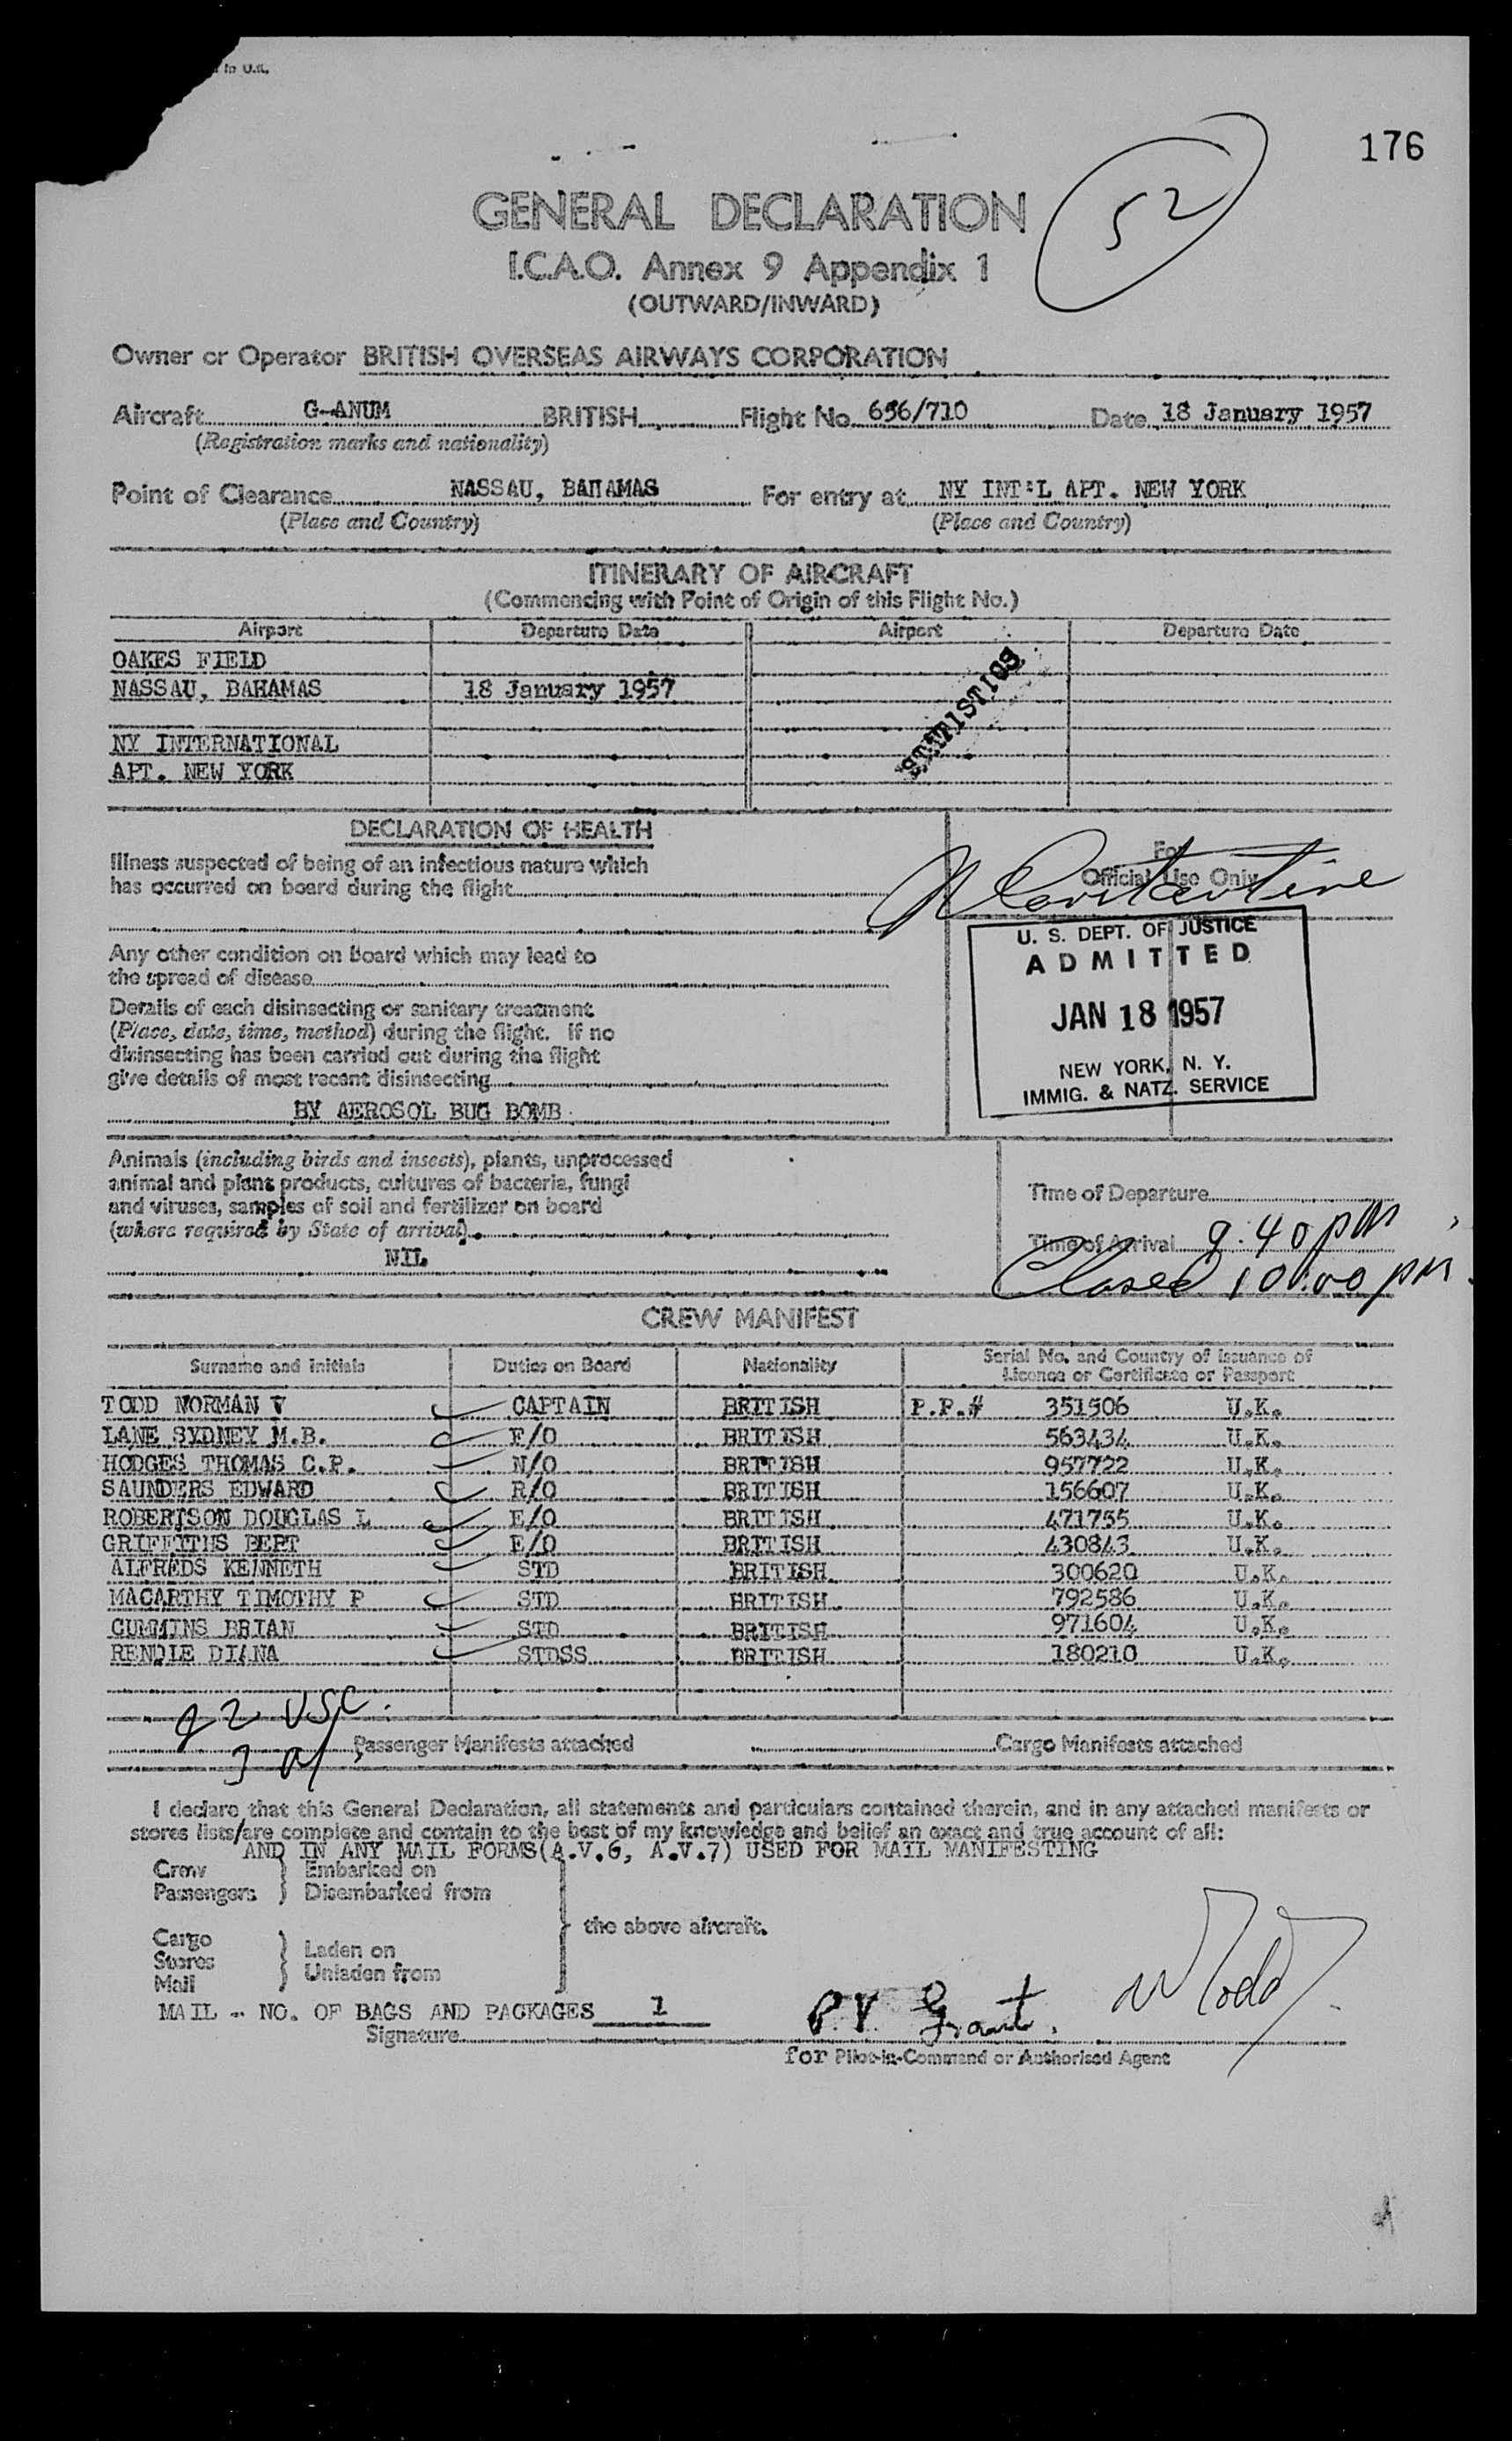 in U.K.
176
52
GENERAL DECLARATION
I.C.A.O. Annex 9 Appendix 1
(OUTWARD/INWARD)
Owner or Operator BRITISH OVERSEAS AIRWAYS CORPORATION
Aircraft G-ANUM BRITISH Flight No. 656/710 Date 18 January 1957
(Registration marks and nationality)
Point of Clearance NASSAU, BAHAMAS For entry at NY INT'L APT. NEW YORK
(Place and Country) (Place and Country)
ITINERARY OF AIRCRAFT
(Commencing with Point of Origin of this Flight No.)
Airport Departure Date Airport Departure Date
OAKES FIELD
NASSAU, BAHAMAS 18 January 1957
STATISTICS
NY INTERNATIONAL
APT. NEW YORK
DECLARATION OF HEALTH
For
Official Use Only
Illness suspected of being of an infectious nature which
has occurred on board during the flight
Any other condition on board which may lead to
the spread of disease
Details of each disinsecting or sanitary treatment
(Place, date, time, method) during the flight. If no
disinsecting has been carried out during the flight
give details of most recent disinsecting
BY AEROSOL BUG BOMB
U. S. DEPT. OF JUSTICE
ADMITTED
JAN 18 1957
NEW YORK, N. Y.
IMMIG. & NATZ. SERVICE
Animals (including birds and insects), plants, unprocessed
animal and plant products, cultures of bacteria, fungi
and viruses, samples of soil and fertilizer on board
(where required by State of arrival)
NIL
Time of Departure
Time of Arrival 9:40 pm
Closed 10:00 pm
CREW MANIFEST
Surname and Initials Duties on Board Nationality Serial No. and Country of Issuance of
Licence or Certificate or Passport
TODD NORMAN V CAPTAIN BRITISH P.P.# 351506 U.K.
LANE SYDNEY M.B. F/O BRITISH 563434 U.K.
HODGES THOMAS C.P. N/O BRITISH 957722 U.K.
SAUNDERS EDWARD R/O BRITISH 156607 U.K.
ROBERTSON DOUGLAS L E/O BRITISH 471755 U.K.
GRIFFITHS BERT E/O BRITISH 430843 U.K.
ALFREDS KENNETH STD BRITISH 300620 U.K.
MACARTHY TIMOTHY P STD BRITISH 792586 U.K.
CUMMINS BRIAN STD BRITISH 971604 U.K.
RENDLE DIANA STDSS BRITISH 180210 U.K.
22 USC
3 a/
Passenger Manifests attached Cargo Manifests attached
I declare that this General Declaration, all statements and particulars contained therein, and in any attached manifests or
stores lists/are complete and contain to the best of my knowledge and belief an exact and true account of all:
AND IN ANY MAIL FORMS(A.V.6, A.V.7) USED FOR MAIL MANIFESTING
Crew Embarked on
Passengers Disembarked from
the above aircraft.
Cargo
Stores Laden on
Mail Unladen from
MAIL - NO. OF BAGS AND PACKAGES 1
Signature P.V. Grant. N Todd
for Pilot-in-Command or Authorised Agent